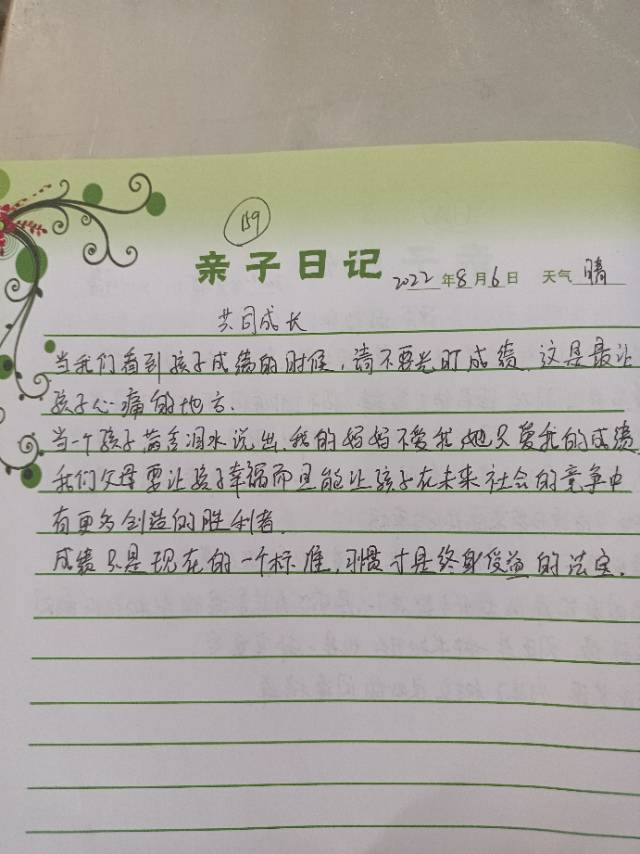 159
亲子日记 2022年8月6日 天气 晴
共同成长
当我们看到孩子成绩的时候,请不要光盯成绩,这是最让
孩子心痛的地方.
当一个孩子满含泪水说出,我的妈妈不爱我,她只爱我的成绩
我们父母要让孩子幸福而且能让孩子在未来社会的竞争中
有更多创造的胜利者.
成绩只是现在的一个标准,习惯才是终身受益的法宝.